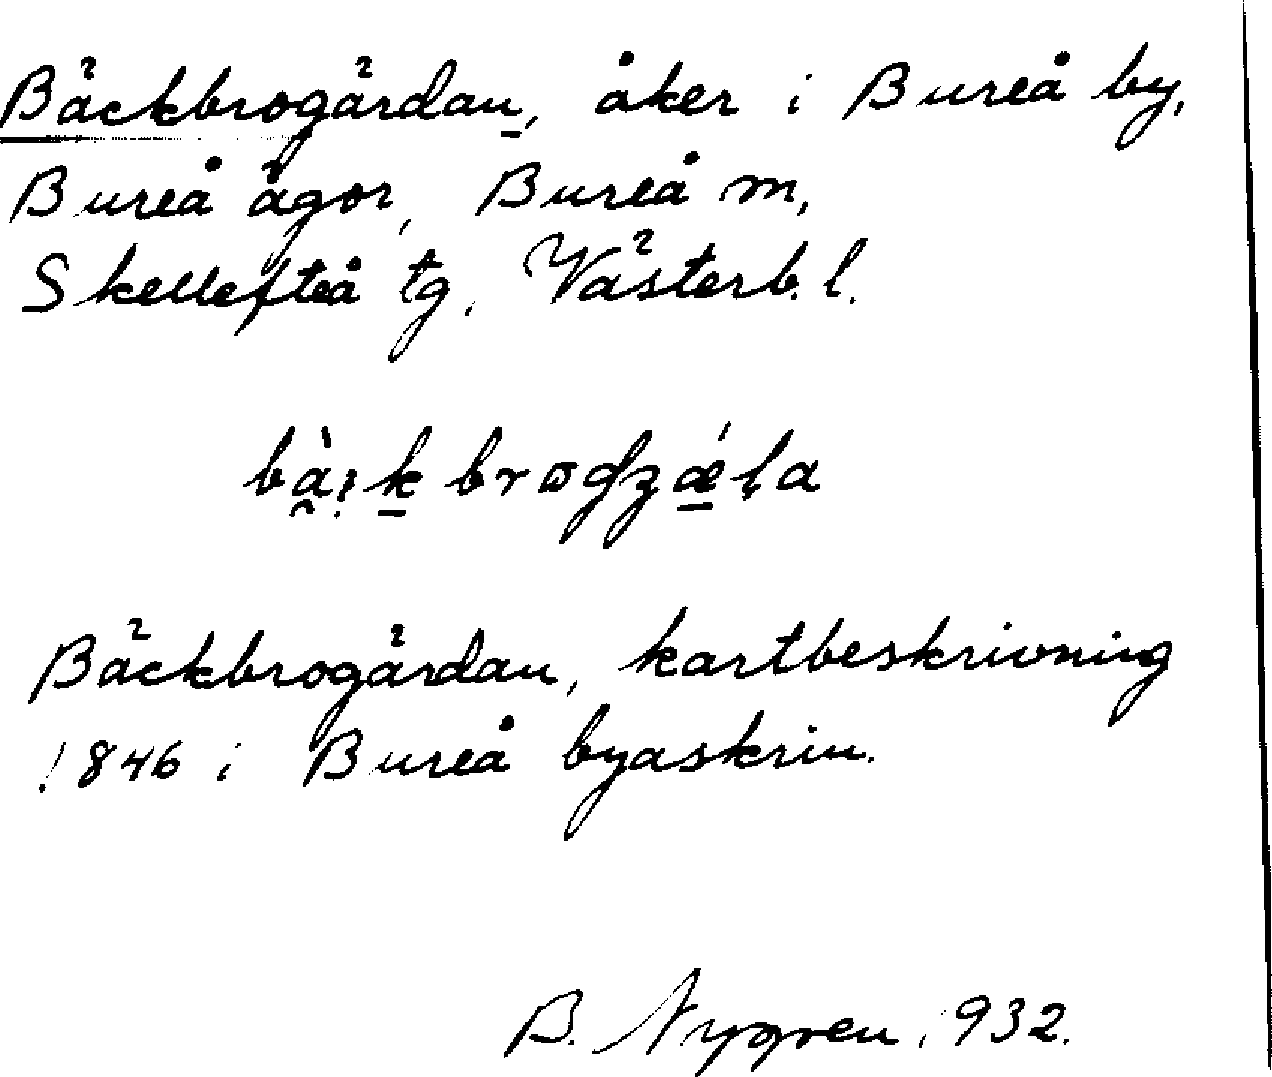 Bäckbrogärdan, åker i Bureå by,
Bureå ågor, Bureå m,
Skellefteå tg, Västerb. l.
Bäckbrogärdan, kartbeskrivning
1846 i Bureå byaskrin.
B. Nygren 1932.